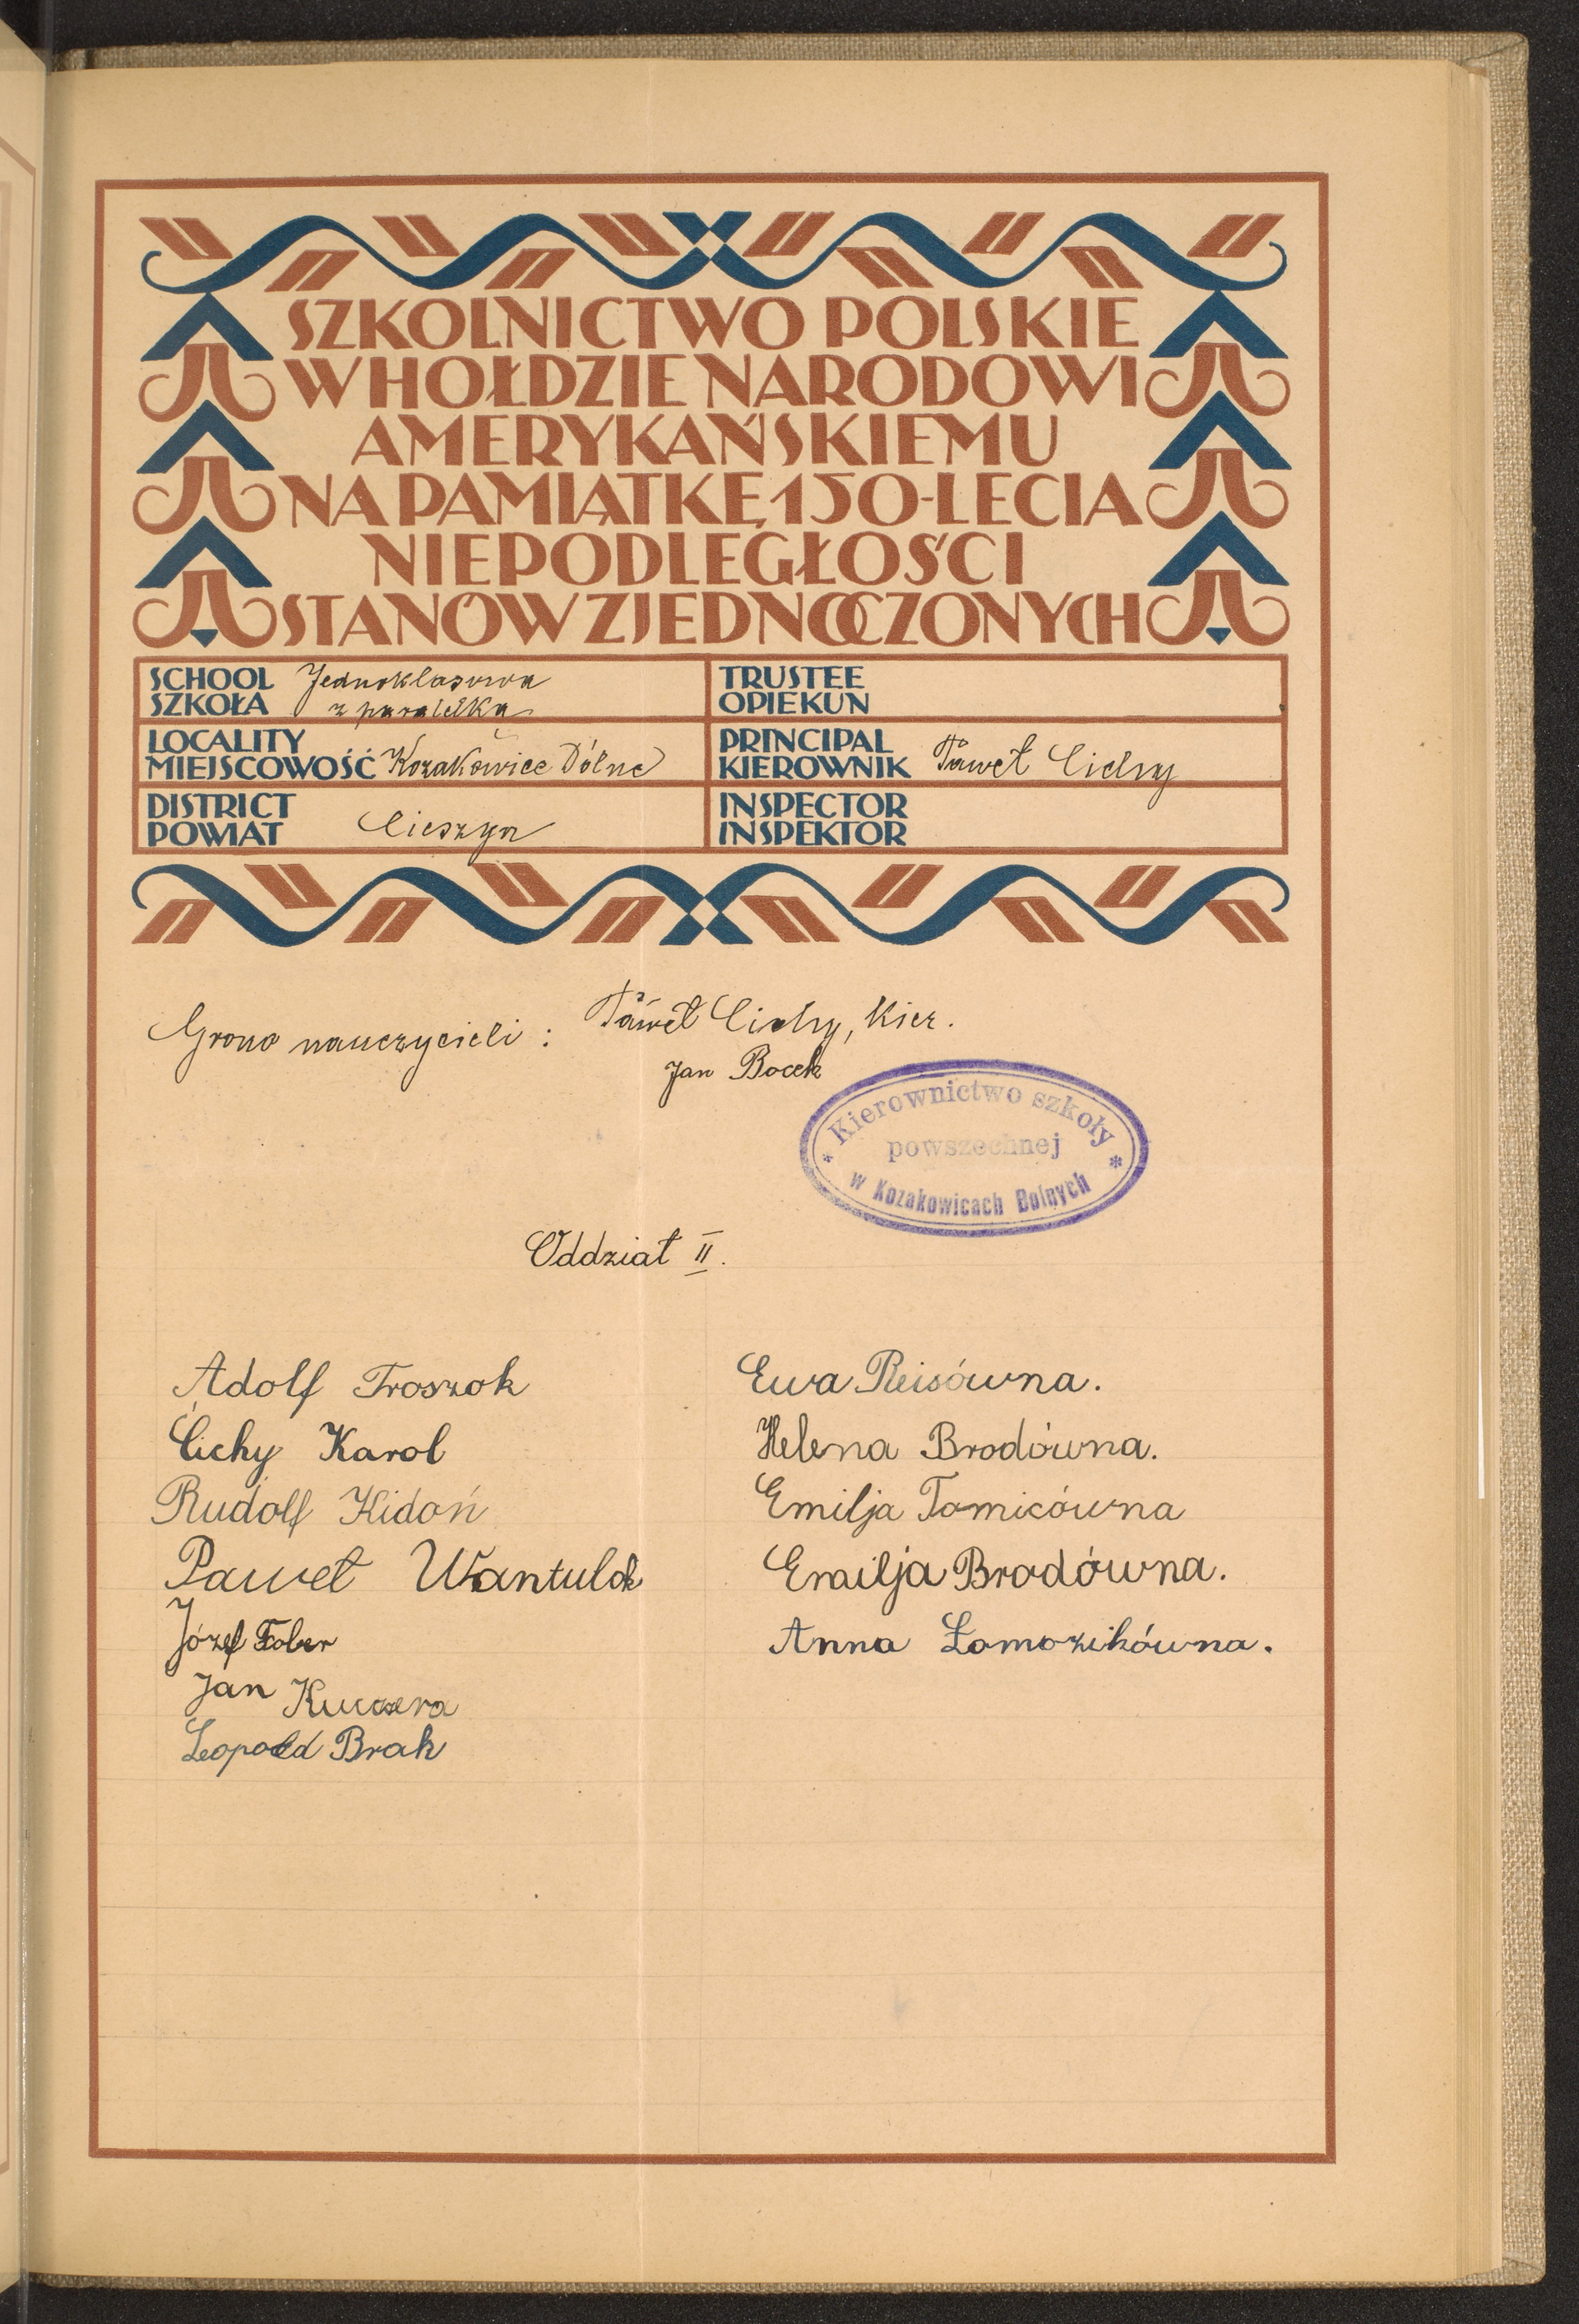 SZKOLNICTWO POLSKIE
W HOŁDZIE NARODOWI
AMERYKAŃSKIEMU
NA PAMIĄTKĘ 150-LECIA
NIEPODLEGŁOŚCI
STANÓW ZJEDNOCZONYCH
SCHOOL
SZKOŁA
Jednoklasowa
z paralelką
TRUSTEE
OPIEKUN
LOCALITY
MIEJSCOWOŚĆ Kozakowice Dolne
PRINCIPAL
KIEROWNIK Paweł Cichy
DISTRICT
POWIAT Cieszyn
INSPECTOR
INSPEKTOR
Grono nauczycieli : Paweł Cichy, kier.
Jan Bocek
* Kierownictwo szkoły *
powszechnej
w Kozakowicach Dolnych
Oddział II.
Adolf Troszok
Cichy Karol
Rudolf Kidoń
Paweł Wantulok
Józef Fober
Jan Kuczera
Leopold Brak
Ewa Reisówna.
Helena Brodówna.
Emilja Tomicówna
Emilja Brodówna.
Anna Łomozikówna.